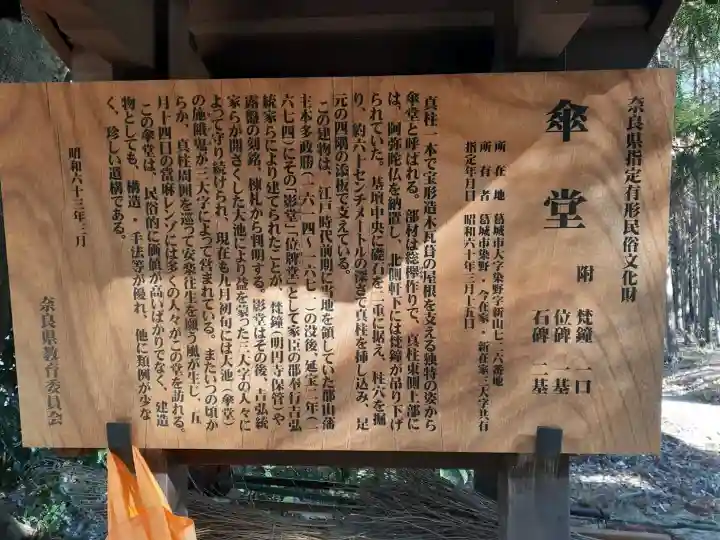 奈良県指定有形民俗文化財
傘堂
附 梵鐘 一口
位碑 一基
石碑 一基
所在地 葛城市大字染野字新山七一六番地
所有者 葛城市染野・今在家・新在家三大字共有
指定年月日 昭和六十年三月十五日
真柱一本で宝形造本瓦葺の屋根を支える独特の姿から
傘堂と呼ばれる。部材は総欅作りで、真柱東側上部に
は、阿弥陀仏を納置し、北側軒下には梵鐘が吊り下げ
られていた。基壇中央に礎石を二重に据え、柱穴を掘
り、約六十センチメートルの深さで真柱を挿し込み、足
元の四隅の添板で支えている。
この建物は、江戸時代前期に当地を領していた郡山藩
主本多政勝(一六一四〜一六七一)の没後、延宝二年(一
六七四)にその「影堂」「位牌堂」として家臣の郡奉行吉弘
統家らにより建てられたことが、梵鐘(明円寺保管)や
露盤の刻銘、棟札から判明する。影堂はその後、吉弘統
家らが開さくした大池により益を蒙った三大字の人々に
よって守り続けられ、現在も九月初旬には大池(傘堂)
の施餓鬼が三大字によって営まれている。またいつの頃か
らか、真柱周囲を巡って安楽往生を願う風が生じ、五
月十四日の當麻レンゾには多くの人々がこの堂を訪れる。
この傘堂は、民俗的に価値が高いばかりでなく、建造
物としても、構造・手法等が優れ、他に類例が少な
く、珍しい遺構である。
昭和六十三年三月
奈良県教育委員会